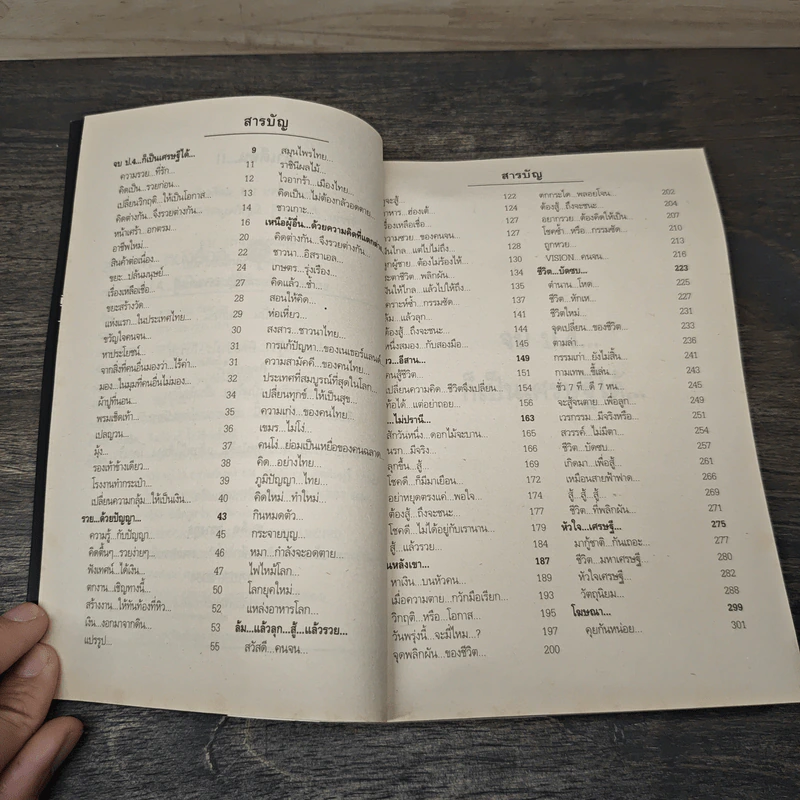 สารบัญ
จบ ป.4...ก็เป็นเศรษฐีได้... 9
ความรวย...ที่รัก... 11
คิดเป็น...รวยก่อน... 12
เปลี่ยนวิกฤติ...ให้เป็นโอกาส... 13
คิดต่างกัน...จึงรวยต่างกัน... 14
หน้าเศร้า...อกตรม... 16
อาชีพใหม่... 20
สินค้าต่อเนื่อง... 22
ขยะ...ปล้นมนุษย์... 24
เรื่องเหลือเชื่อ... 27
ขยะสร้างวัด... 28
แห่งแรก...ในประเทศไทย... 29
ขวัญใจคนจน... 30
หาประโยชน์... 31
จากสิ่งที่คนอื่นมองว่า...ไร้ค่า... 31
มอง...ในมุมที่คนอื่นไม่มอง... 32
ผ้าปูที่นอน... 34
พรมเช็ดเท้า... 35
เปลญวน... 36
มุ้ง... 37
รองเท้าข้างเดียว... 38
โรงงานทำกระเป๋า... 39
เปลี่ยนความกลุ้ม...ให้เป็นเงิน... 40
รวย...ด้วยปัญญา... 43
ความรู้...กับปัญญา... 45
คิดตื้นๆ...รวยง่ายๆ... 46
ฟังเทศน์...ได้เงิน... 47
ตกงาน...เชิญทางนี้... 50
สร้างงาน...ให้ทันท้องที่หิว... 52
เงิน...งอกมาจากดิน... 53
แปรรูป... 55
สมุนไพรไทย...
ราชินีผลไม้...
ไวอากร้า...เมืองไทย...
คิดเป็น...ไม่ต้องกลัวอดตาย...
ชาวเกาะ...
เหนือผู้อื่น...ด้วยความคิดที่แตกต่าง
คิดต่างกัน...จึงรวยต่างกัน...
ชาวนา...อิสราเอล...
เกษตร...รุ่งเรือง...
คิดแล้ว...ช้ำ...
สอนให้คิด...
ห่อเหี่ยว...
สงสาร...ชาวนาไทย...
การแก้ปัญหา...ของเนเธอร์แลนด์
ความสามัคคี...ของคนไทย...
ประเทศที่สมบูรณ์ที่สุดในโลก...
เปลี่ยนทุกข์...ให้เป็นสุข...
ความเก่ง...ของคนไทย...
เขมร...ไม่โง่...
คนโง่...ย่อมเป็นเหยื่อของคนฉลาด
คิด...อย่างไทย...
ภูมิปัญญา...ไทย...
คิดใหม่...ทำใหม่...
กินหมดตัว...
กระจายบุญ...
หมา...กำลังจะอดตาย...
ไฟไหม้โลก...
โลกยุคใหม่...
แหล่งอาหารโลก...
ล้ม...แล้วลุก...สู้...แล้วรวย...
สวัสดี...คนจน...
สารบัญ
122
หาร...ฮ่องเต้ 124
เรื่องเหลือเชื่อ... 127
ความซวย...ของคนจน... 127
เงินไกล...แต่ไปไม่ถึง... 128
ลูกผู้ชาย...ต้องไม่ร้องไห้... 130
ชะตาชีวิต...พลิกผัน... 134
เงินให้ไกล...แล้วไปให้ถึง... 135
เคราะห์ซ้ำ...กรรมซัด... 137
ล้ม...แล้วลุก... 141
ต้องสู้...ถึงจะชนะ... 144
หนึ่งสมอง...กับสองมือ... 145
...อีสาน... 149
คนสู้ชีวิต... 151
เปลี่ยนความคิด...ชีวิตจึงเปลี่ยน... 154
ท้อได้...แต่อย่าถอย... 156
...ไม่ปรานี... 163
สักวันหนึ่ง...ดอกไม้จะบาน... 165
นรก...มีจริง... 166
ลุกขึ้น...สู้... 169
โชคดี...ก็มีมาเยือน... 172
อย่าหยุดตรงแค่...พอใจ... 174
ต้องสู้...ถึงจะชนะ... 177
โชคดี...ไม่ได้อยู่กับเรานาน... 179
สู้...แล้วรวย... 184
...หลังเขา... 187
หาเงิน...บนหัวคน... 189
เมื่อความตาย...กวักมือเรียก... 193
วิกฤติ...หรือ...โอกาส... 195
วันพรุ่งนี้...จะมีไหม...? 197
จุดพลิกผัน...ของชีวิต... 200
ตกกระได...พลอยโจน... 202
ต้องสู้...ถึงจะชนะ... 204
อยากรวย...ต้องคิดให้เป็น... 207
โชคซ้ำ...หรือ...กรรมซัด... 210
ถูกหวย... 213
VISION...คนจน... 216
ชีวิต...บัดซบ... 223
ตำนาน...โหด... 225
ชีวิต...หักเห... 227
ชีวิตใหม่... 231
จุดเปลี่ยน...ของชีวิต... 233
ตามล่า... 236
กรรมเก่า...ยังไม่สิ้น... 241
กามเทพ...ขี้เล่น... 243
ชั่ว 7 ที...ดี 7 หน... 245
จะสู้จนตาย...เพื่อลูก... 249
เวรกรรม...มีจริงหรือ... 251
สวรรค์...ไม่มีตา... 254
ชีวิต...บัดซบ... 257
เกิดมา...เพื่อสู้... 261
เหมือนสายฟ้าฟาด... 266
สู้...สู้...สู้... 269
ชีวิต...ที่พลิกผัน... 271
หัวใจ...เศรษฐี... 275
มากู้ชาติ...กันเถอะ... 277
ชีวิต...มหาเศรษฐี... 280
หัวใจเศรษฐี... 282
วัตถุนิยม... 288
โฆษณา... 299
คุยกันหน่อย... 301